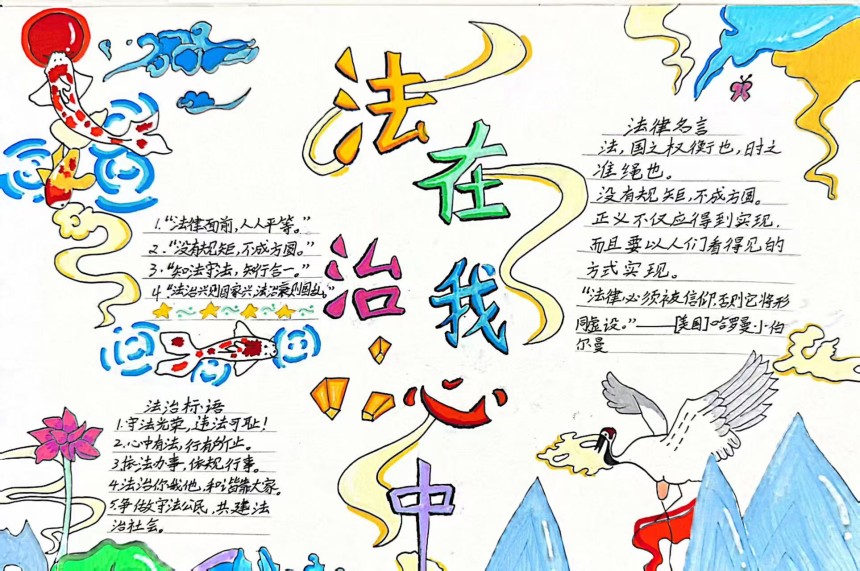 法治
在我心中
1."法律面前，人人平等。"
2."没有规矩，不成方圆。"
3."知法守法，知行合一。"
4."法治兴则国家兴，法治衰则国乱。"
法治标语
1.守法光荣，违法可耻！
2.心中有法，行有所止。
3.依法办事，依规行事。
4.法治你我他，和谐靠大家。
5.争做守法公民，共建法
治社会。
法律名言
法，国之权衡也，时之
准绳也。
没有规矩，不成方圆。
正义不仅应得到实现，
而且要以人们看得见的
方式实现。
"法律必须被信仰，否则它将形
同虚设。"——[美国]哈罗曼·小伯
尔曼